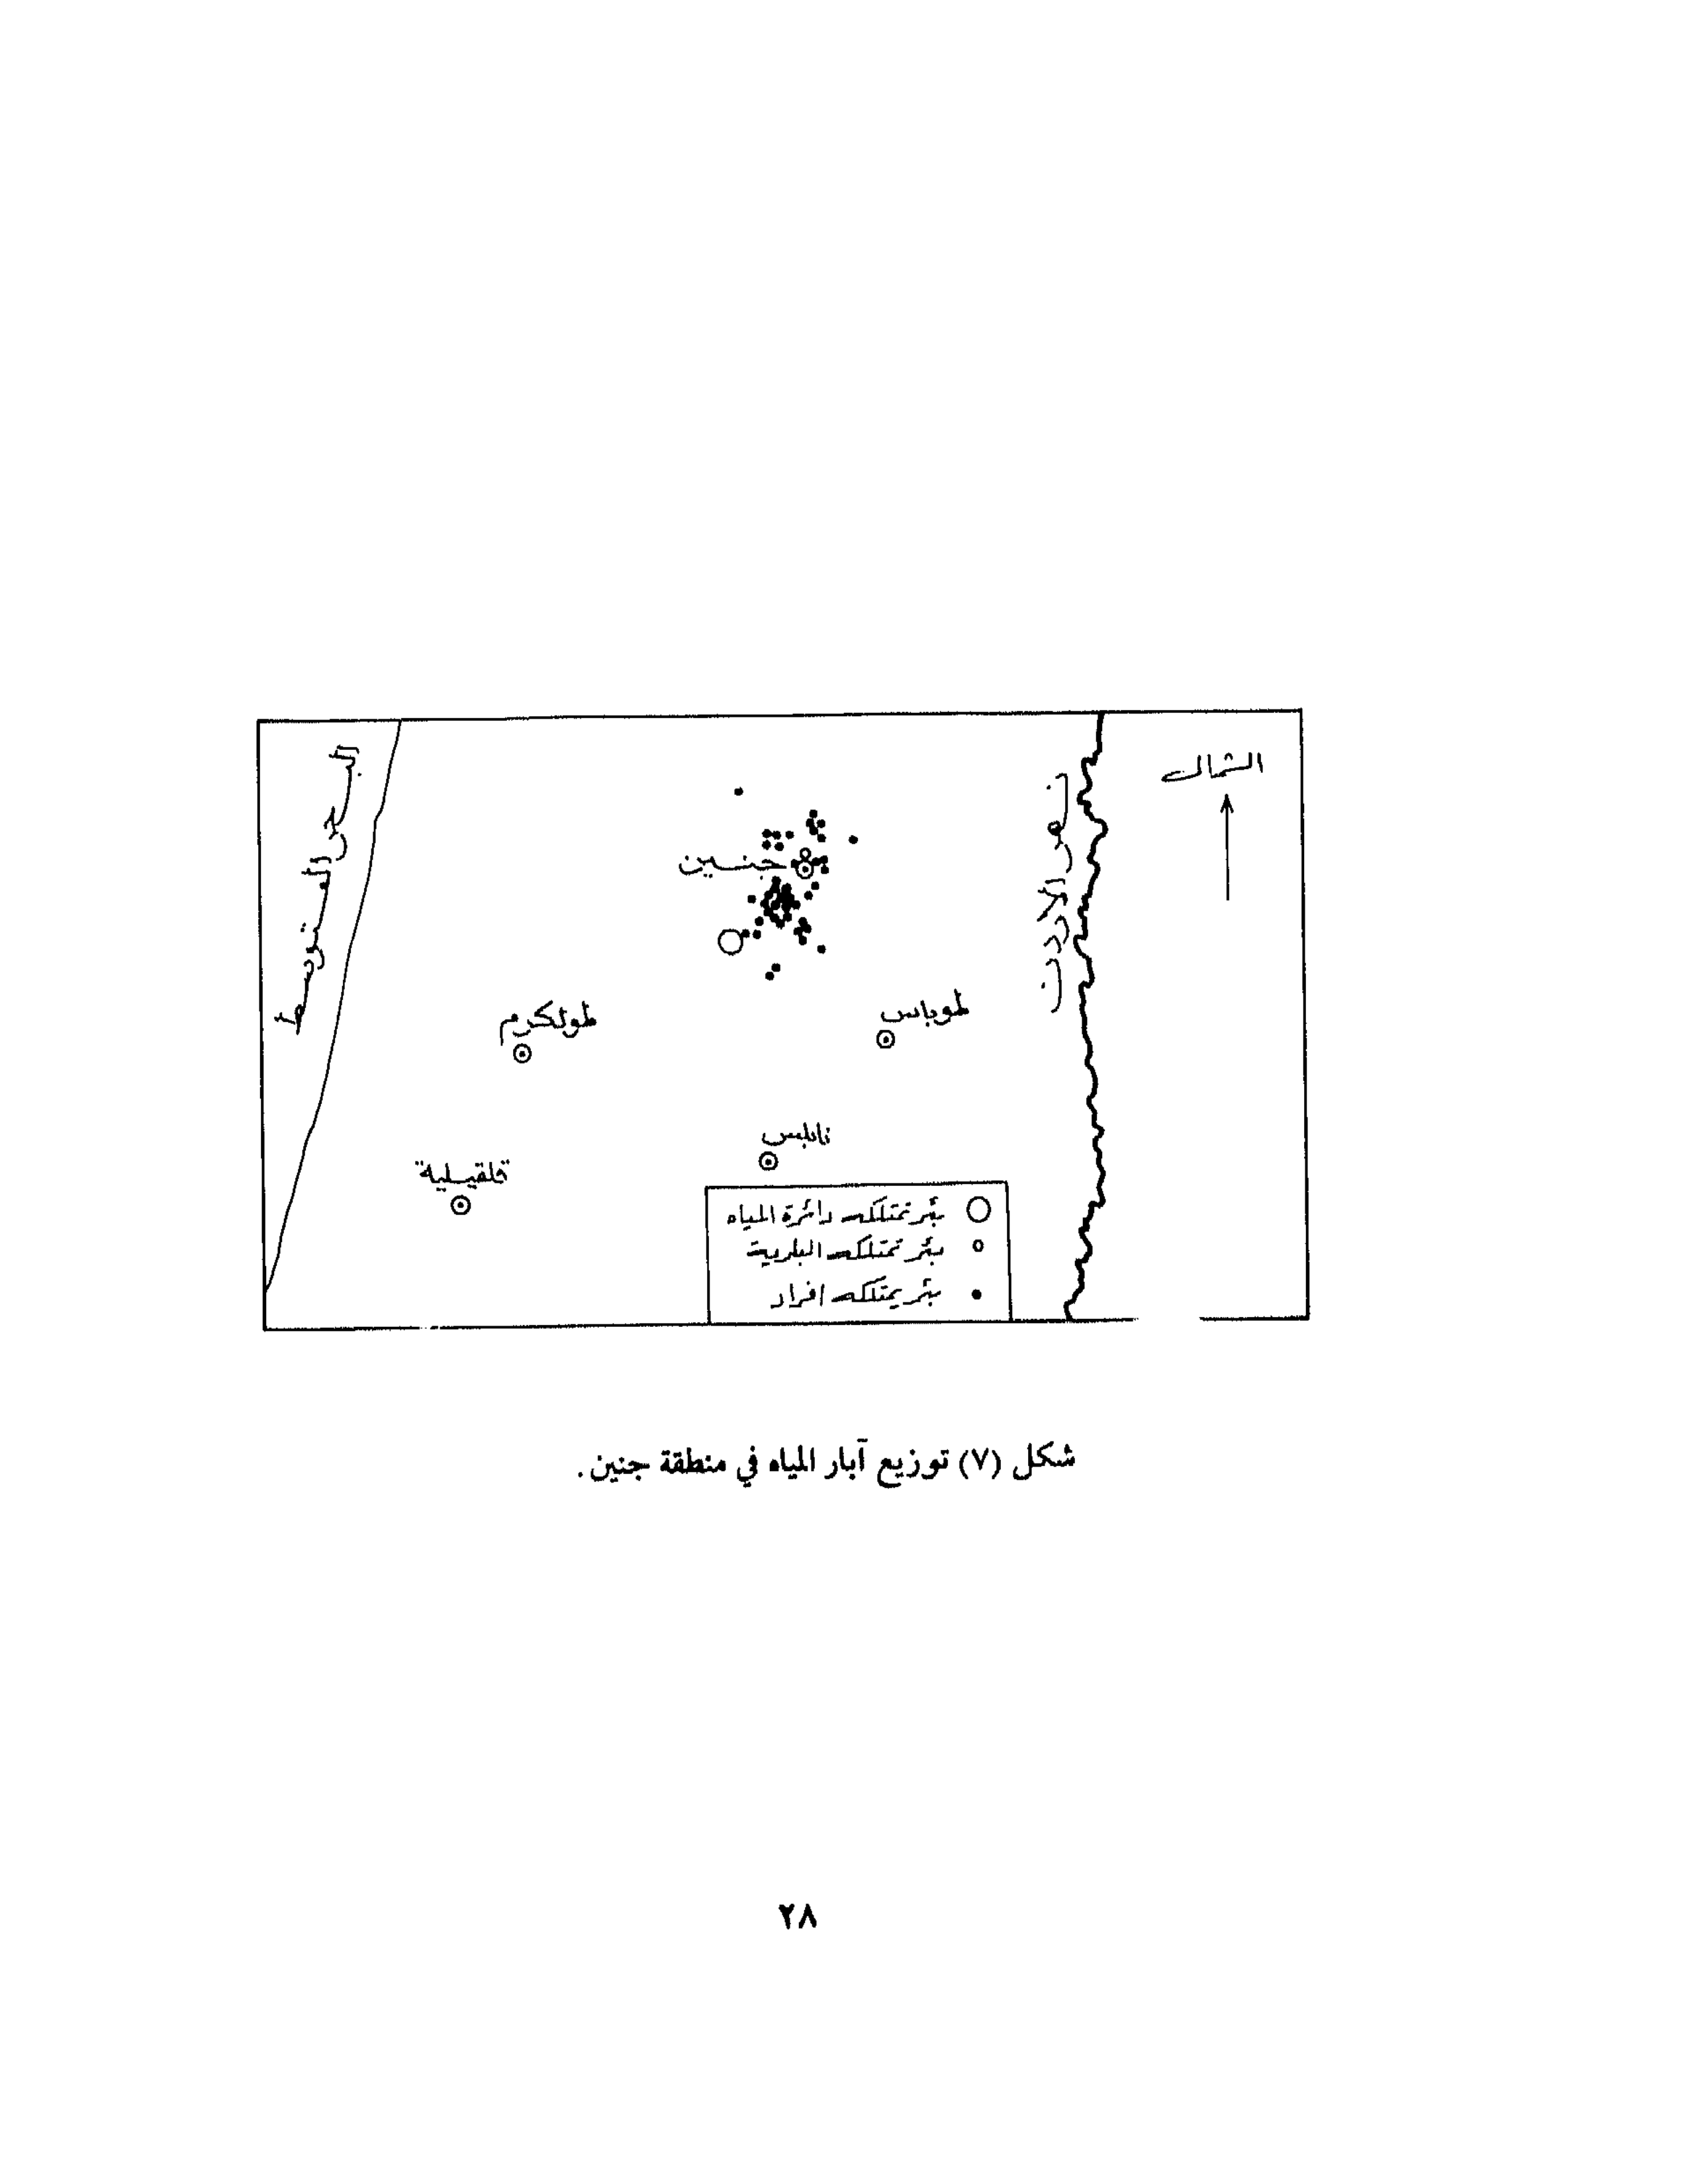 الشمال
البحر المتوسط
نهر الأردن
جنين
طولكرم
طوباس
نابلس
قلقيلية
بئر تمتلكه دائرة المياه
بئر تمتلكه البلدية
بئر يمتلكه افراد
شكل (٧) توزيع آبار المياه في منطقة جنين.
٢٨